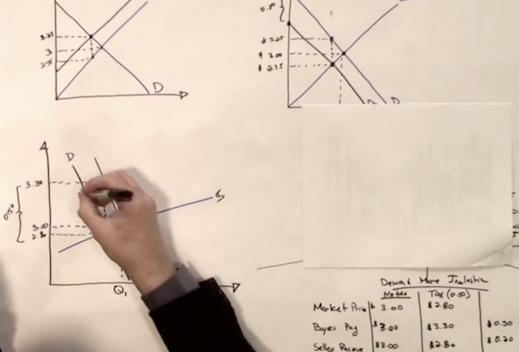 0.5
3.25
3
2.75
D
$ 3.25
$ 3.00
$ 2.75
D
D
0.50
3.30
3.00
2.80
S
Q1
Demand More Inelastic
Notax Tax (0.50)
Market Price $ 3.00 $2.80
Buyers Pay $3.00 $3.30 $0.30
Seller Receive $3.00 $2.80 $0.20